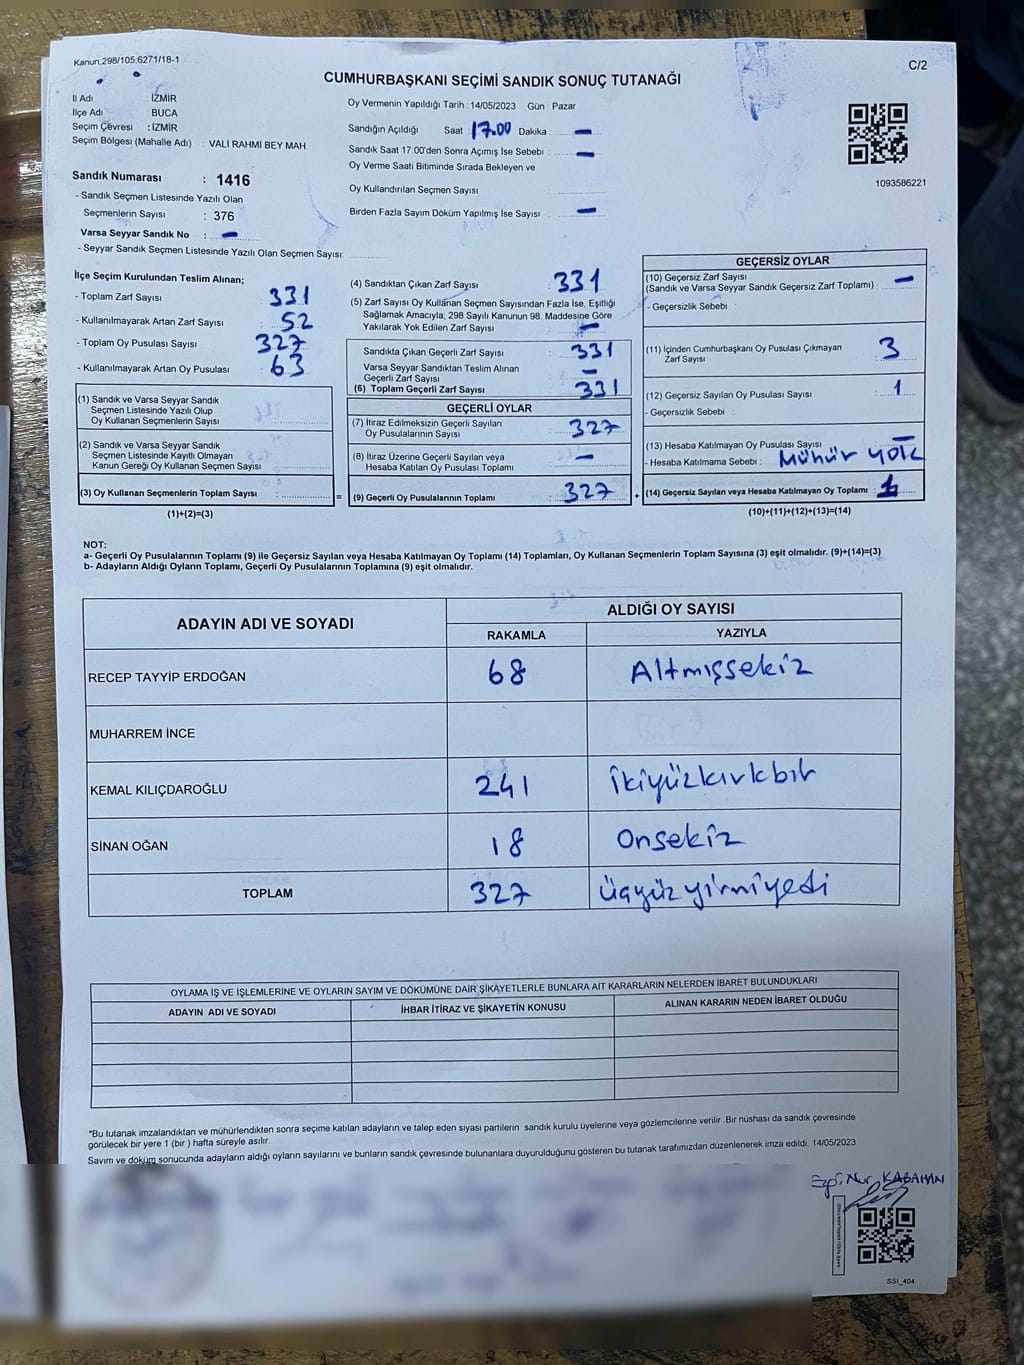 Kanun.298/105;6271/18-1
C/2
CUMHURBAŞKANI SEÇİMİ SANDIK SONUÇ TUTANAĞI
İl Adı : İZMİR
İlçe Adı : BUCA
Seçim Çevresi : İZMİR
Seçim Bölgesi (Mahalle Adı) : VALİ RAHMİ BEY MAH.
Sandık Numarası : 1416
- Sandık Seçmen Listesinde Yazılı Olan
Seçmenlerin Sayısı : 376
Varsa Seyyar Sandık No : -
- Seyyar Sandık Seçmen Listesinde Yazılı Olan Seçmen Sayısı:
Oy Vermenin Yapıldığı Tarih : 14/05/2023 Gün : Pazar
Sandığın Açıldığı Saat : 17.00 Dakika : -
Sandık Saat 17:00'den Sonra Açımış İse Sebebi : -
Oy Verme Saati Bitiminde Sırada Bekleyen ve
Oy Kullandırılan Seçmen Sayısı
Birden Fazla Sayım Döküm Yapılmış İse Sayısı : -
1093586221
İlçe Seçim Kurulundan Teslim Alınan;
- Toplam Zarf Sayısı 331
- Kullanılmayarak Artan Zarf Sayısı : 52
- Toplam Oy Pusulası Sayısı 327
- Kullanılmayarak Artan Oy Pusulası : 63
(1) Sandık ve Varsa Seyyar Sandık
Seçmen Listesinde Yazılı Olup
Oy Kullanan Seçmenlerin Sayısı :
(2) Sandık ve Varsa Seyyar Sandık
Seçmen Listesinde Kayıtlı Olmayan
Kanun Gereği Oy Kullanan Seçmen Sayısı :
(3) Oy Kullanan Seçmenlerin Toplam Sayısı :
(1)+(2)=(3)
=
(4) Sandıktan Çıkan Zarf Sayısı : 331
(5) Zarf Sayısı Oy Kullanan Seçmen Sayısından Fazla İse, Eşitliği
Sağlamak Amacıyla; 298 Sayılı Kanunun 98. Maddesine Göre
Yakılarak Yok Edilen Zarf Sayısı : -
Sandıkta Çıkan Geçerli Zarf Sayısı : 331
Varsa Seyyar Sandıktan Teslim Alınan
Geçerli Zarf Sayısı : -
(6) Toplam Geçerli Zarf Sayısı : 331
GEÇERLİ OYLAR
(7) İtiraz Edilmeksizin Geçerli Sayılan
Oy Pusulalarının Sayısı : 327
(8) İtiraz Üzerine Geçerli Sayılan veya
Hesaba Katılan Oy Pusulası Toplamı : -
(9) Geçerli Oy Pusulalarının Toplamı : 327
+
GEÇERSİZ OYLAR
(10) Geçersiz Zarf Sayısı
(Sandık ve Varsa Seyyar Sandık Geçersiz Zarf Toplamı) : -
- Geçersizlik Sebebi :
(11) İçinden Cumhurbaşkanı Oy Pusulası Çıkmayan
Zarf Sayısı : 3
(12) Geçersiz Sayılan Oy Pusulası Sayısı : 1
- Geçersizlik Sebebi :
(13) Hesaba Katılmayan Oy Pusulası Sayısı : -
- Hesaba Katılmama Sebebi : Mühür yok
(14) Geçersiz Sayılan veya Hesaba Katılmayan Oy Toplamı :
(10)+(11)+(12)+(13)=(14)
NOT:
a- Geçerli Oy Pusulalarının Toplamı (9) ile Geçersiz Sayılan veya Hesaba Katılmayan Oy Toplamı (14) Toplamları, Oy Kullanan Seçmenlerin Toplam Sayısına (3) eşit olmalıdır. (9)+(14)=(3)
b- Adayların Aldığı Oyların Toplamı, Geçerli Oy Pusulalarının Toplamına (9) eşit olmalıdır.
ADAYIN ADI VE SOYADI ALDIĞI OY SAYISI
RAKAMLA YAZIYLA
RECEP TAYYİP ERDOĞAN 68 Altmışsekiz
MUHARREM İNCE
KEMAL KILIÇDAROĞLU 241 İkiyüzkırkbir
SİNAN OĞAN 18 Onsekiz
TOPLAM 327 Üçyüzyirmiyedi
OYLAMA İŞ VE İŞLEMLERİNE VE OYLARIN SAYIM VE DÖKÜMÜNE DAİR ŞİKAYETLERLE BUNLARA AİT KARARLARIN NELERDEN İBARET BULUNDUKLARI
ADAYIN ADI VE SOYADI İHBAR İTİRAZ VE ŞİKAYETİN KONUSU ALINAN KARARIN NEDEN İBARET OLDUĞU
*Bu tutanak imzalandıktan ve mühürlendikten sonra seçime katılan adayların ve talep eden siyasi partilerin sandık kurulu üyelerine veya gözlemcilerine verilir .Bir nüshası da sandık çevresinde
görülecek bir yere 1 (bir ) hafta süreyle asılır.
Sayım ve döküm sonucunda adayların aldığı oyların sayılarını ve bunların sandık çevresinde bulunanlara duyurulduğunu gösteren bu tutanak tarafımızdan düzenlenerek imza edildi. 14/05/2023
Ezgi Nur KABAHAN
SSİ_404